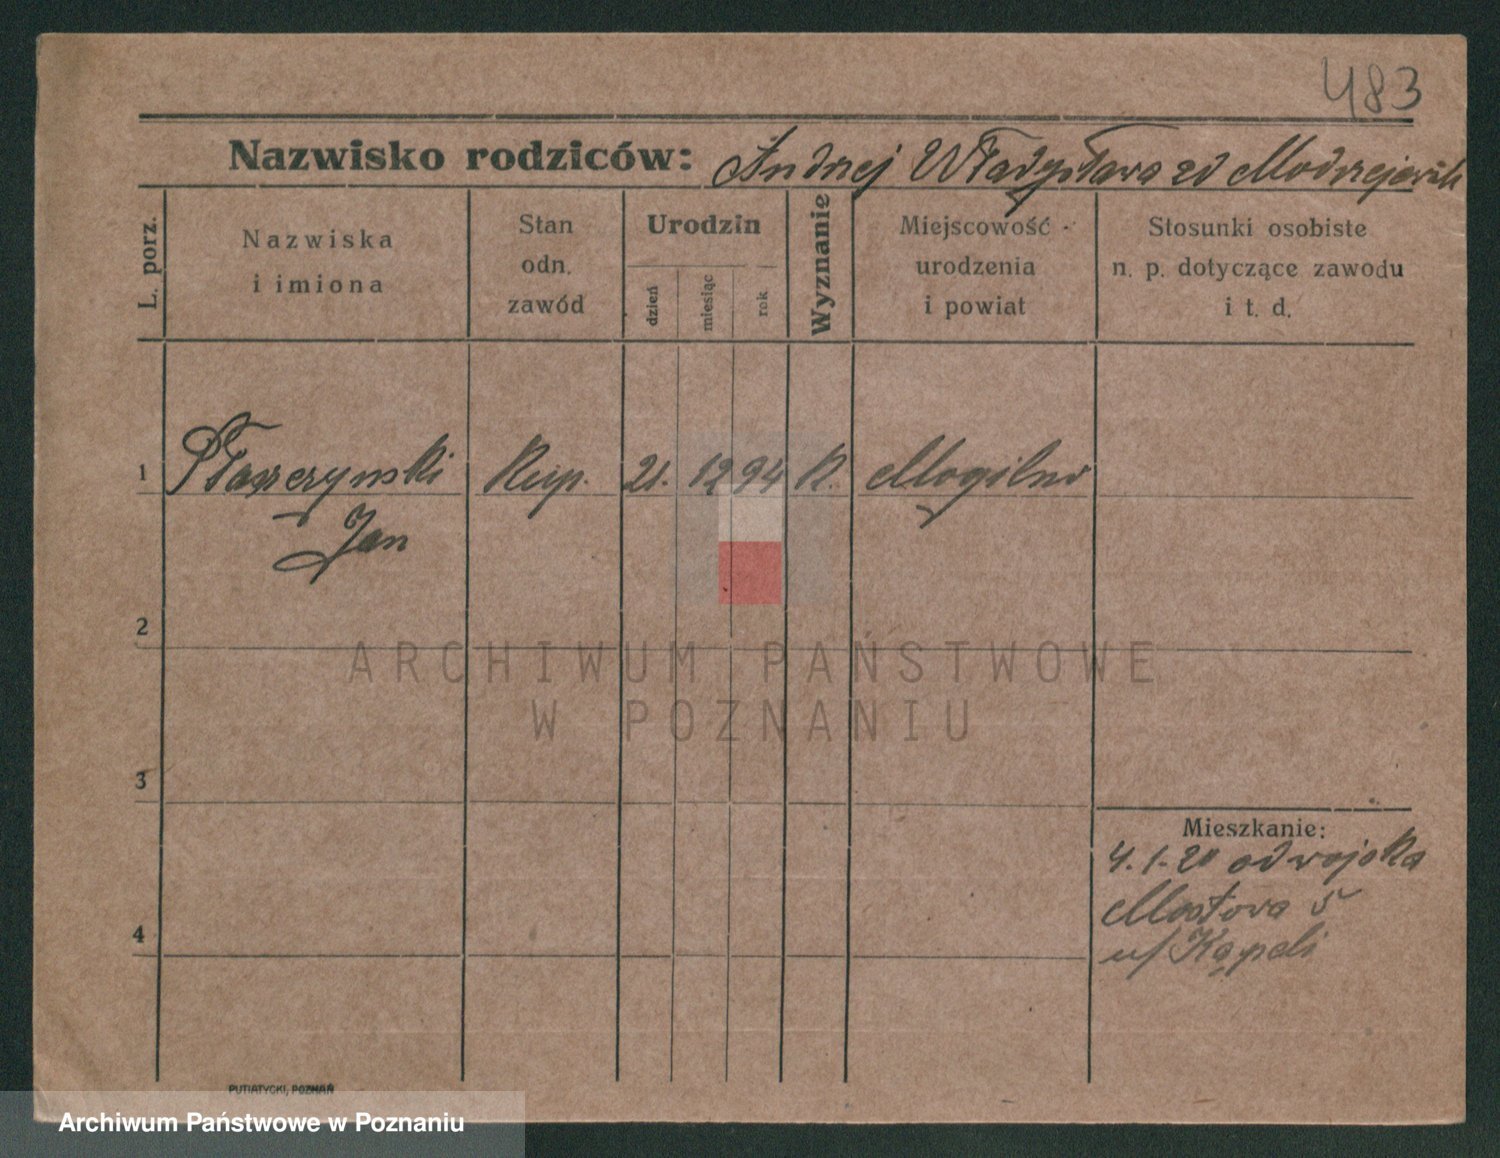 483
Nazwisko rodziców: Andrzej Władysława zd Modrzejewsk
L. porz.
Nazwiska
i imiona
Stan
odn.
zawód
Urodzin
dzień
miesiąc
rok
Wyznanie
Miejscowość
urodzenia
i powiat
Stosunki osobiste
n. p. dotyczące zawodu
i t. d.
1 Płaszczynski Kup. 21. 12 94 K. Mogilno
Jan
2
3
4
Mieszkanie:
4.1.20 od wojska
Mostowa 5
u/ Kąpeli
ARCHIWUM PAŃSTWOWE
W POZNANIU
PUTIATYCKI, POZNAŃ
Archiwum Państwowe w Poznaniu